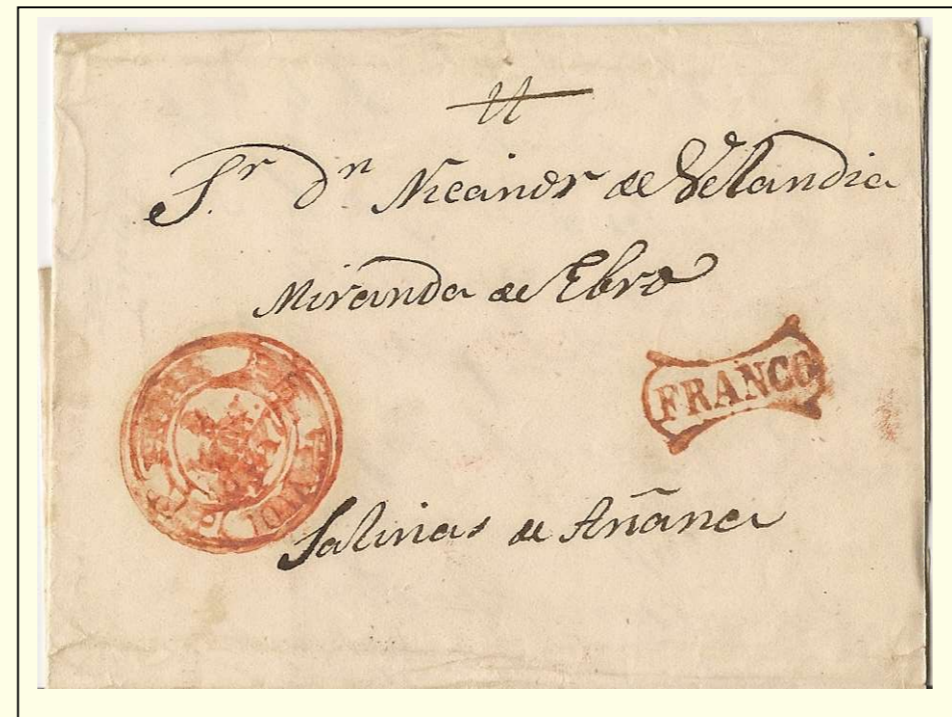 Sr Dn Nicanor de Velandia
Miranda de Ebro
FRANCO
Salinas de Añana